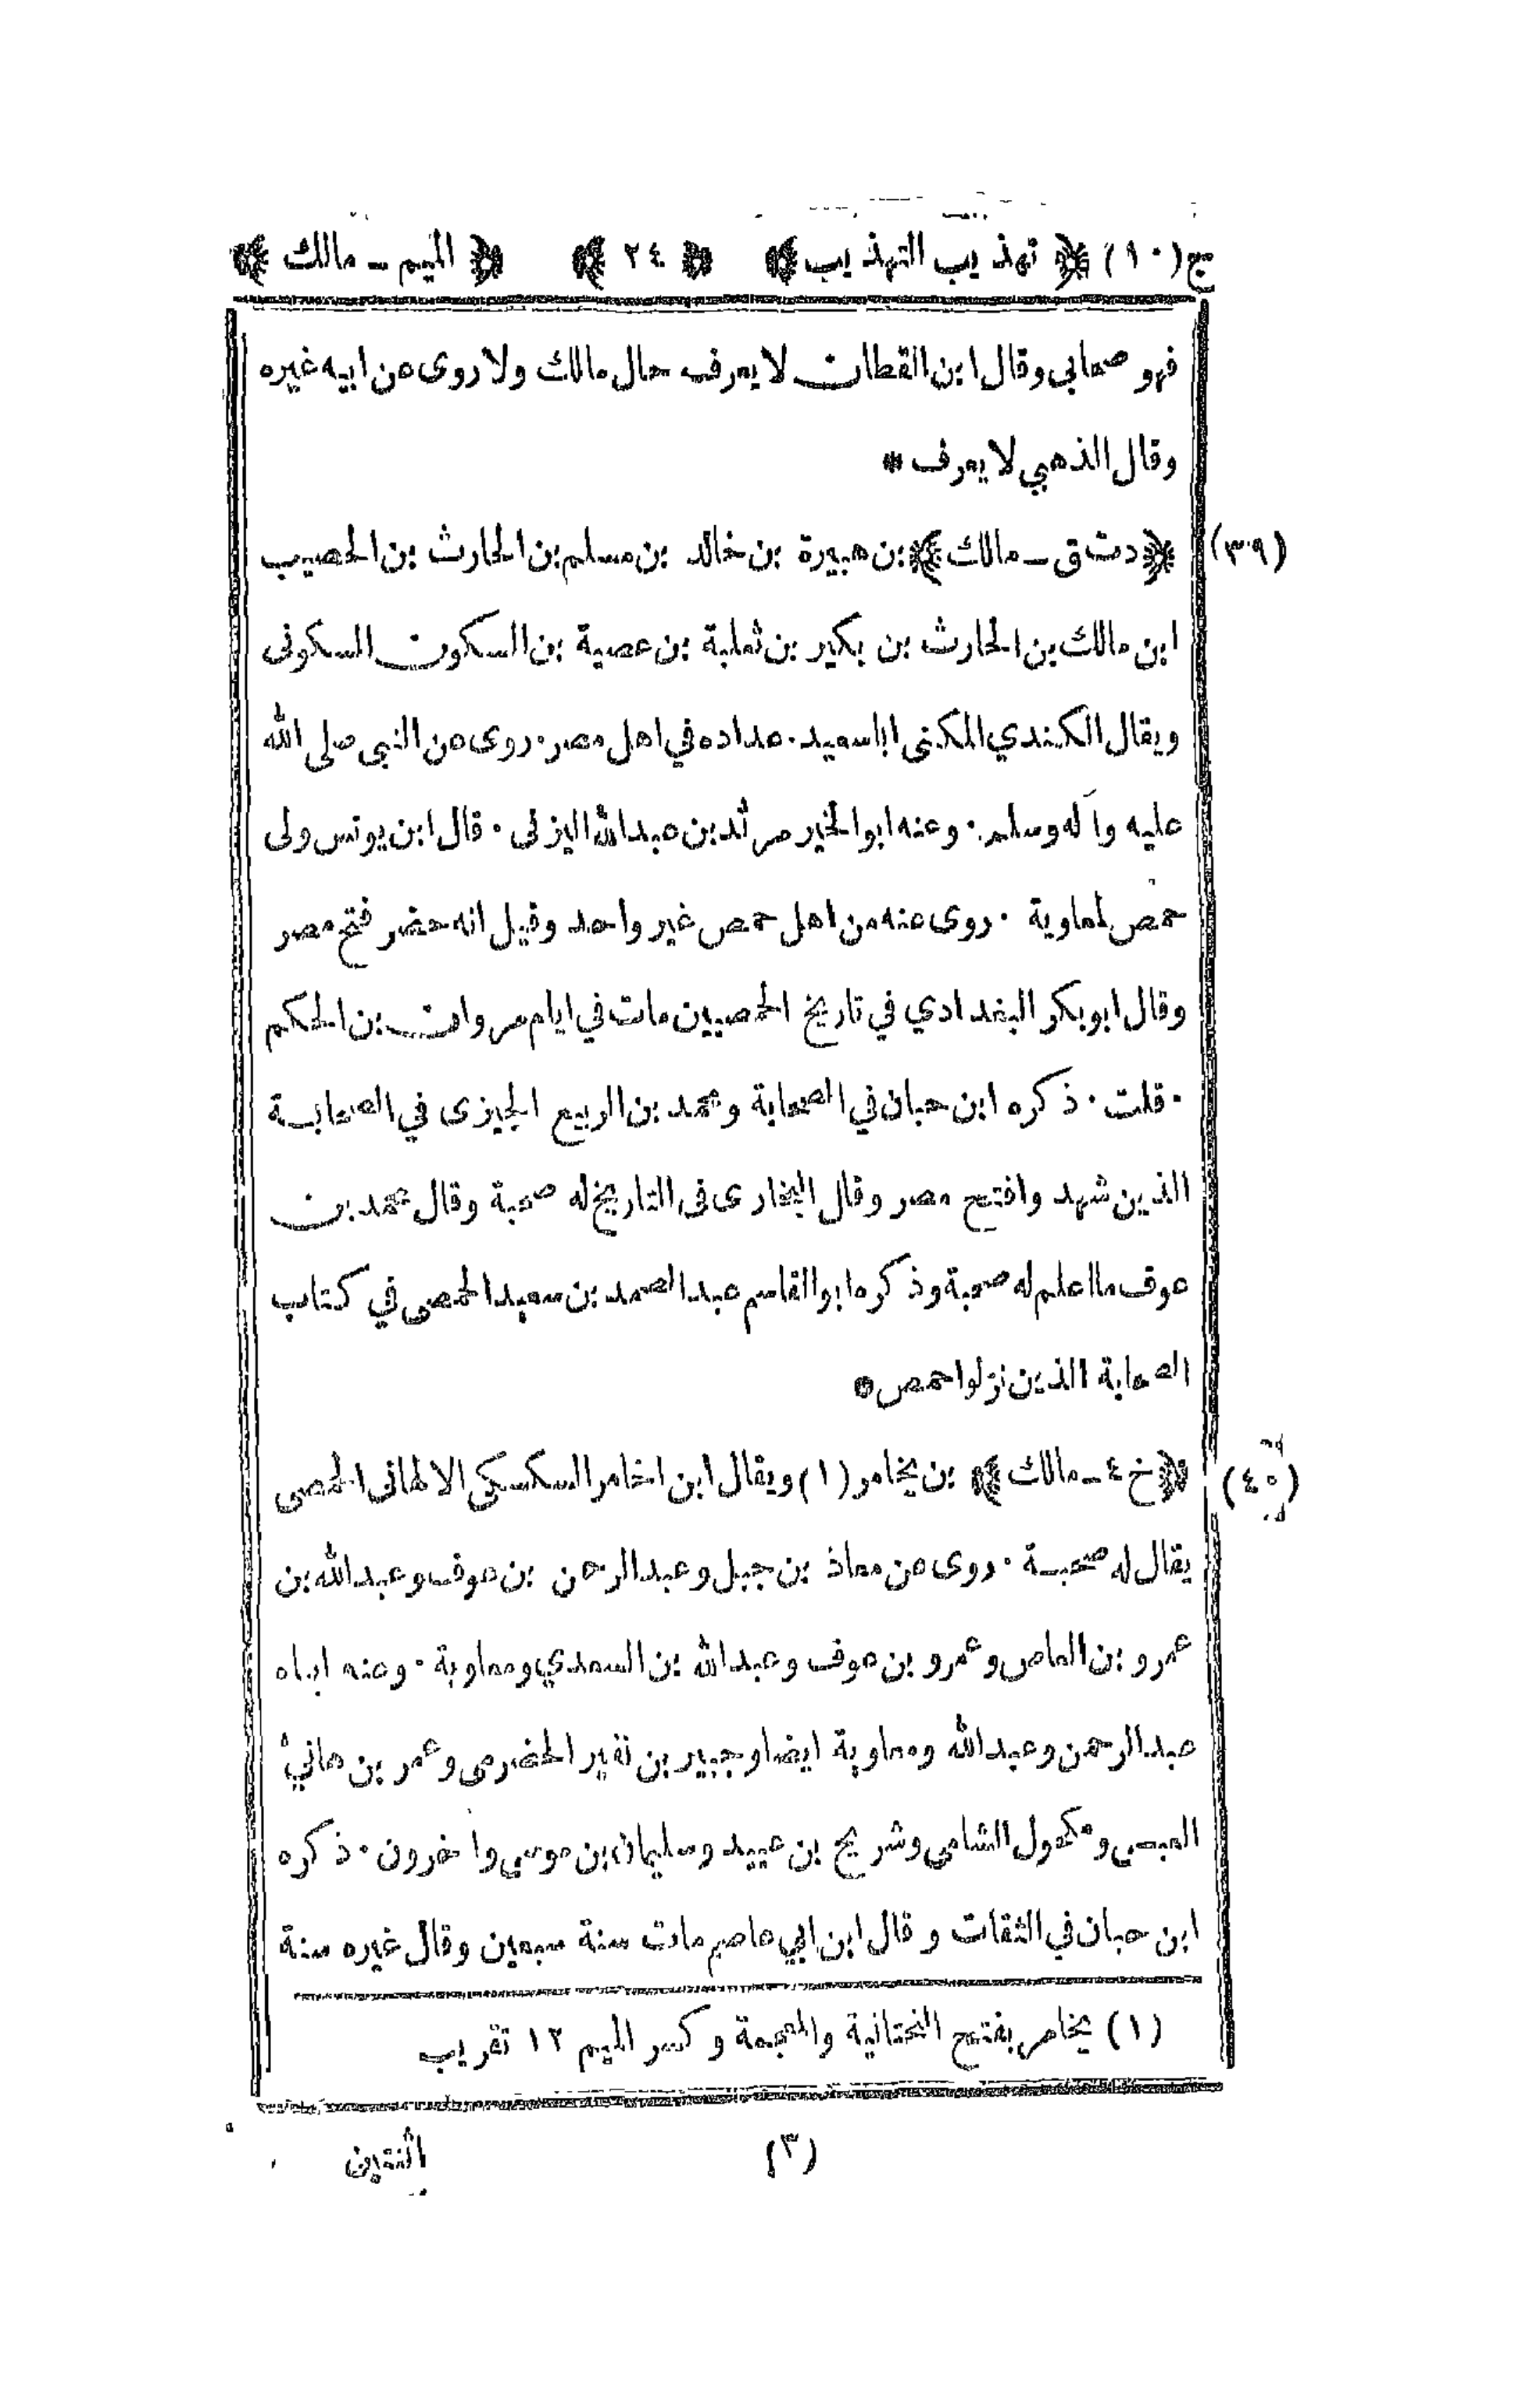 ج(١٠) ﴿ تهذيب التهذيب ﴾ ﴿ ٢٤ ﴾ ﴿ الميم ـ مالك ﴾
فهو صحابي وقال ابن القطان لا يعرف حال مالك ولا روى عن ابيه غيره
وقال الذهبي لا يعرف *
(٣٩) ﴿ د ت ق ـ مالك ﴾ بن هبيرة بن خالد بن مسلم بن الحارث بن الخصيب
ابن مالك بن الحارث بن بكير بن ثعلبة بن عصية بن السكون السكونى
ويقال الكندي المكنى ابا سعيد ٠ عداده في اهل مصر ٠ روى عن النبى صلى الله
عليه وآله وسلم ٠ وعنه ابو الخير مرثد بن عبدالله اليزنى ٠ قال ابن يونس ولى
حمص لمعاوية ٠ روى عنه من اهل حمص غير واحد وقيل انه حضر فتح مصر
وقال ابو بكر البغدادي في تاريخ الحمصيين مات في ايام مروان بن الحكم
٠ قلت ٠ ذكره ابن حبان في الصحابة ومحمد بن الربيع الجيزى في الصحابة
الذين شهد وافتح مصر وقال البخارى فى التاريخ له صحبة وقال محمد بن
عوف ما اعلم له صحبة وذكره ابو القاسم عبد الصمد بن سعيد الحمصى في كتاب
الصحابة الذين نزلوا حمص *
(٤٠) ﴿ خ ٤ ـ مالك ﴾ بن يخامر (١) ويقال ابن اخامر السكسكى الالهانى الحمصى
يقال له صحبة ٠ روى عن معاذ بن جبل وعبد الرحمن بن عوف وعبد الله بن
عمرو بن العاص وعمرو بن عوف وعبد الله بن السعدي ومعاوية ٠ وعنه ابناه
عبد الرحمن وعبد الله ومعاوية ايضا وجبير بن نفير الحضرمى وعمر بن هانئ
العبسى ومكحول الشامى وشريح بن عبيد وسليمان بن موسى وآخرون ٠ ذكره
ابن حبان في الثقات وقال ابن ابي عاصم مات سنة سبعين وقال غيره سنة
(١) يخامر بفتح التحتانية والمعجمة وكسر الميم ١٢ تقريب
(٣) اثنتين